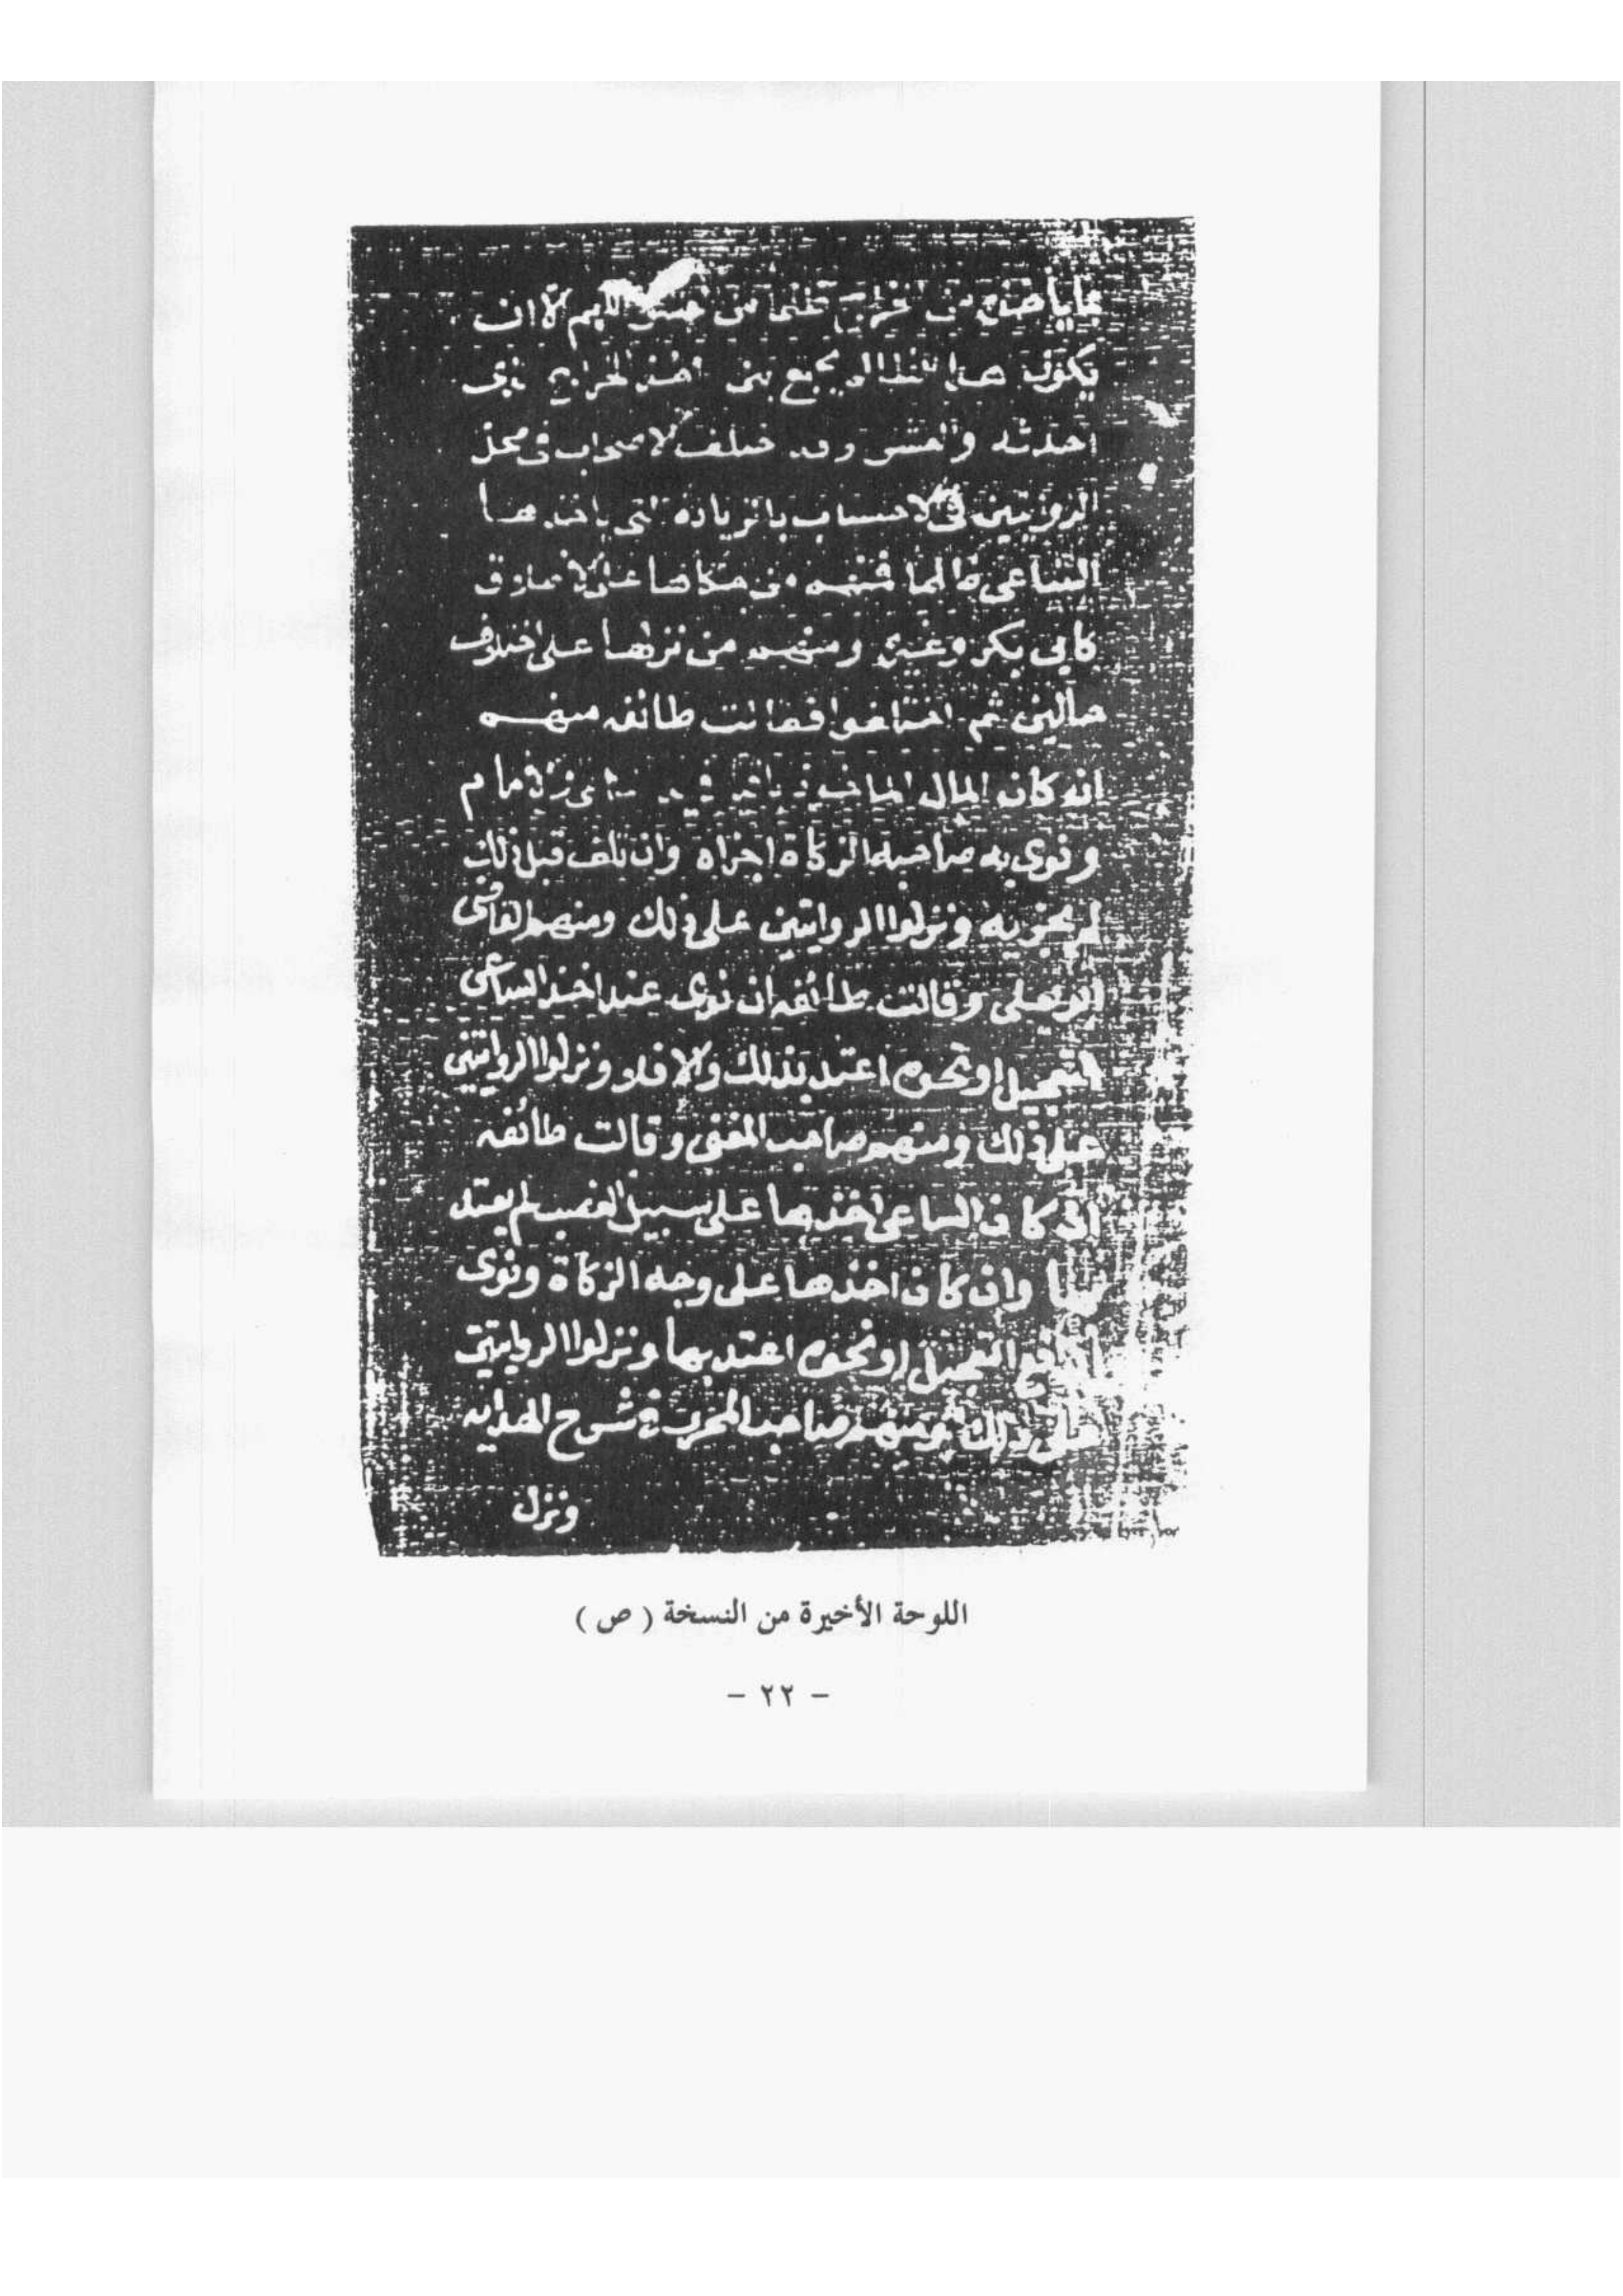 يكون هذا الظالم يجمع بين أخذ الخراج الذي
احدثه والعشر وقد اختلف الاصحاب في محل
الروايتين في الاحتساب بالزيادة التي ياخذها
الساعي ظالما فمنهم من حكاها على الاطلاق
كابي بكر وغيره ومنهم من نزلها على اختلاف
حالين ثم اختلفوا فقالت طائفه منهم
انه كان المال الماخوذ
ونوى به صاحبه الزكاة اجزاه وان تلف قبل ذلك
لم يجزيه ونزلوا الروايتين على ذلك ومنهم القاضى
ابو يعلى وقالت طائفه ان نوى عند اخذ الساعى
التعجيل او نحوه اعتد بذلك والا فلا ونزلوا الروايتين
على ذلك ومنهم صاحب المغنى وقالت طائفه
ان كان الساعى اخذها على سبيل الغصب لم يعتد
بها وان كان اخذها على وجه الزكاة ونوى
التعجيل او نحوه اعتد بها ونزلوا الروايتين
على ذلك ومنهم صاحب المحرر في شرح الهدايه
ونزل
اللوحة الأخيرة من النسخة ( ص )
- ٢٢ -